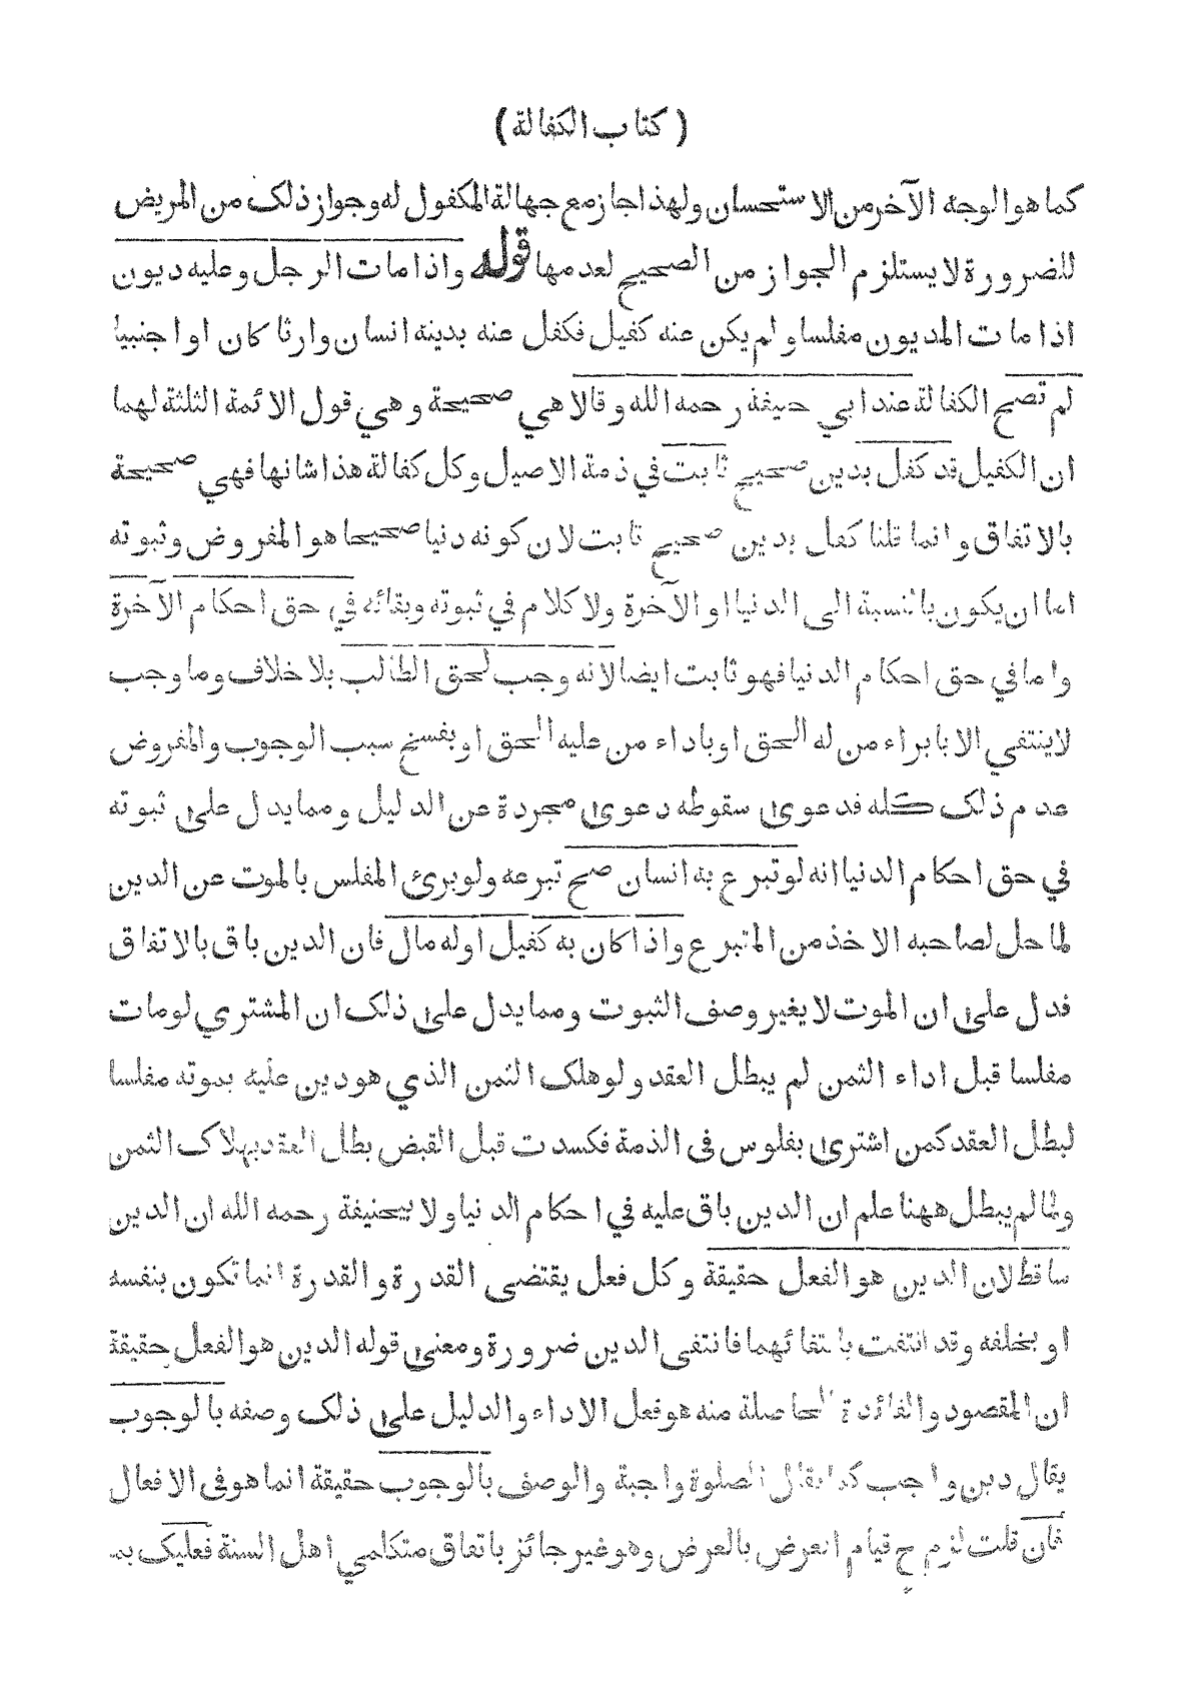 ( كتاب الكفالة )
كما هو الوجه الآخر من الاستحسان ولهذا جاز مع جهالة المكفول له وجواز ذلك من المريض
للضرورة لا يستلزم الجواز من الصحيح لعدمها قوله واذا مات الرجل وعليه ديون
اذا مات المديون مفلسا ولم يكن عنه كفيل فكفل عنه بدينه انسان وارثا كان او اجنبيا
لم تصح الكفالة عند ابي حنيفة رحمه الله وقالا هي صحيحة وهي قول الائمة الثلثة لهما
ان الكفيل قد كفل بدين صحيح ثابت في ذمة الاصيل وكل كفالة هذا شانها فهي صحيحة
بالاتفاق وانما قلنا كفل بدين صحيح ثابت لان كونه دنيا صحيحا هو المفروض وثبوته
اما ان يكون بالنسبة الى الدنيا او الآخرة ولا كلام في ثبوته وبقائه في حق احكام الآخرة
واما في حق احكام الدنيا فهو ثابت ايضا لانه وجب لحق الطالب بلا خلاف وما وجب
لا ينتفي الا بابراء من له الحق او باداء من عليه الحق او بفسخ سبب الوجوب والمفروض
عدم ذلك كله فدعوى سقوطه دعوى مجردة عن الدليل ومما يدل على ثبوته
في حق احكام الدنيا انه لو تبرع به انسان صح تبرعه ولو برئ المفلس بالموت عن الدين
لما حل لصاحبه الاخذ من المتبرع واذا كان به كفيل او له مال فان الدين باق بالاتفاق
فدل على ان الموت لا يغير وصف الثبوت ومما يدل على ذلك ان المشتري لو مات
مفلسا قبل اداء الثمن لم يبطل العقد ولو هلك الثمن الذي هو دين عليه بموته مفلسا
لبطل العقد كمن اشترى بفلوس فى الذمة فكسدت قبل القبض بطل العقد بهلاك الثمن
ولما لم يبطل ههنا علم ان الدين باق عليه في احكام الدنيا ولا بيحنيفة رحمه الله ان الدين
ساقط لان الدين هو الفعل حقيقة وكل فعل يقتضى القدرة والقدرة انما تكون بنفسه
او بخلفه وقد انتفت بانتفائهما فانتفى الدين ضرورة ومعنى قوله الدين هو الفعل حقيقة
ان المقصود والفائدة الحاصلة منه هو فعل الاداء والدليل على ذلك وصفه بالوجوب
يقال دين واجب كما يقال الصلوة واجبة والوصف بالوجوب حقيقة انما هو فى الافعال
فان قلت لزم ح قيام العرض بالعرض وهو غير جائز باتفاق متكلمي اهل السنة فعليك بما